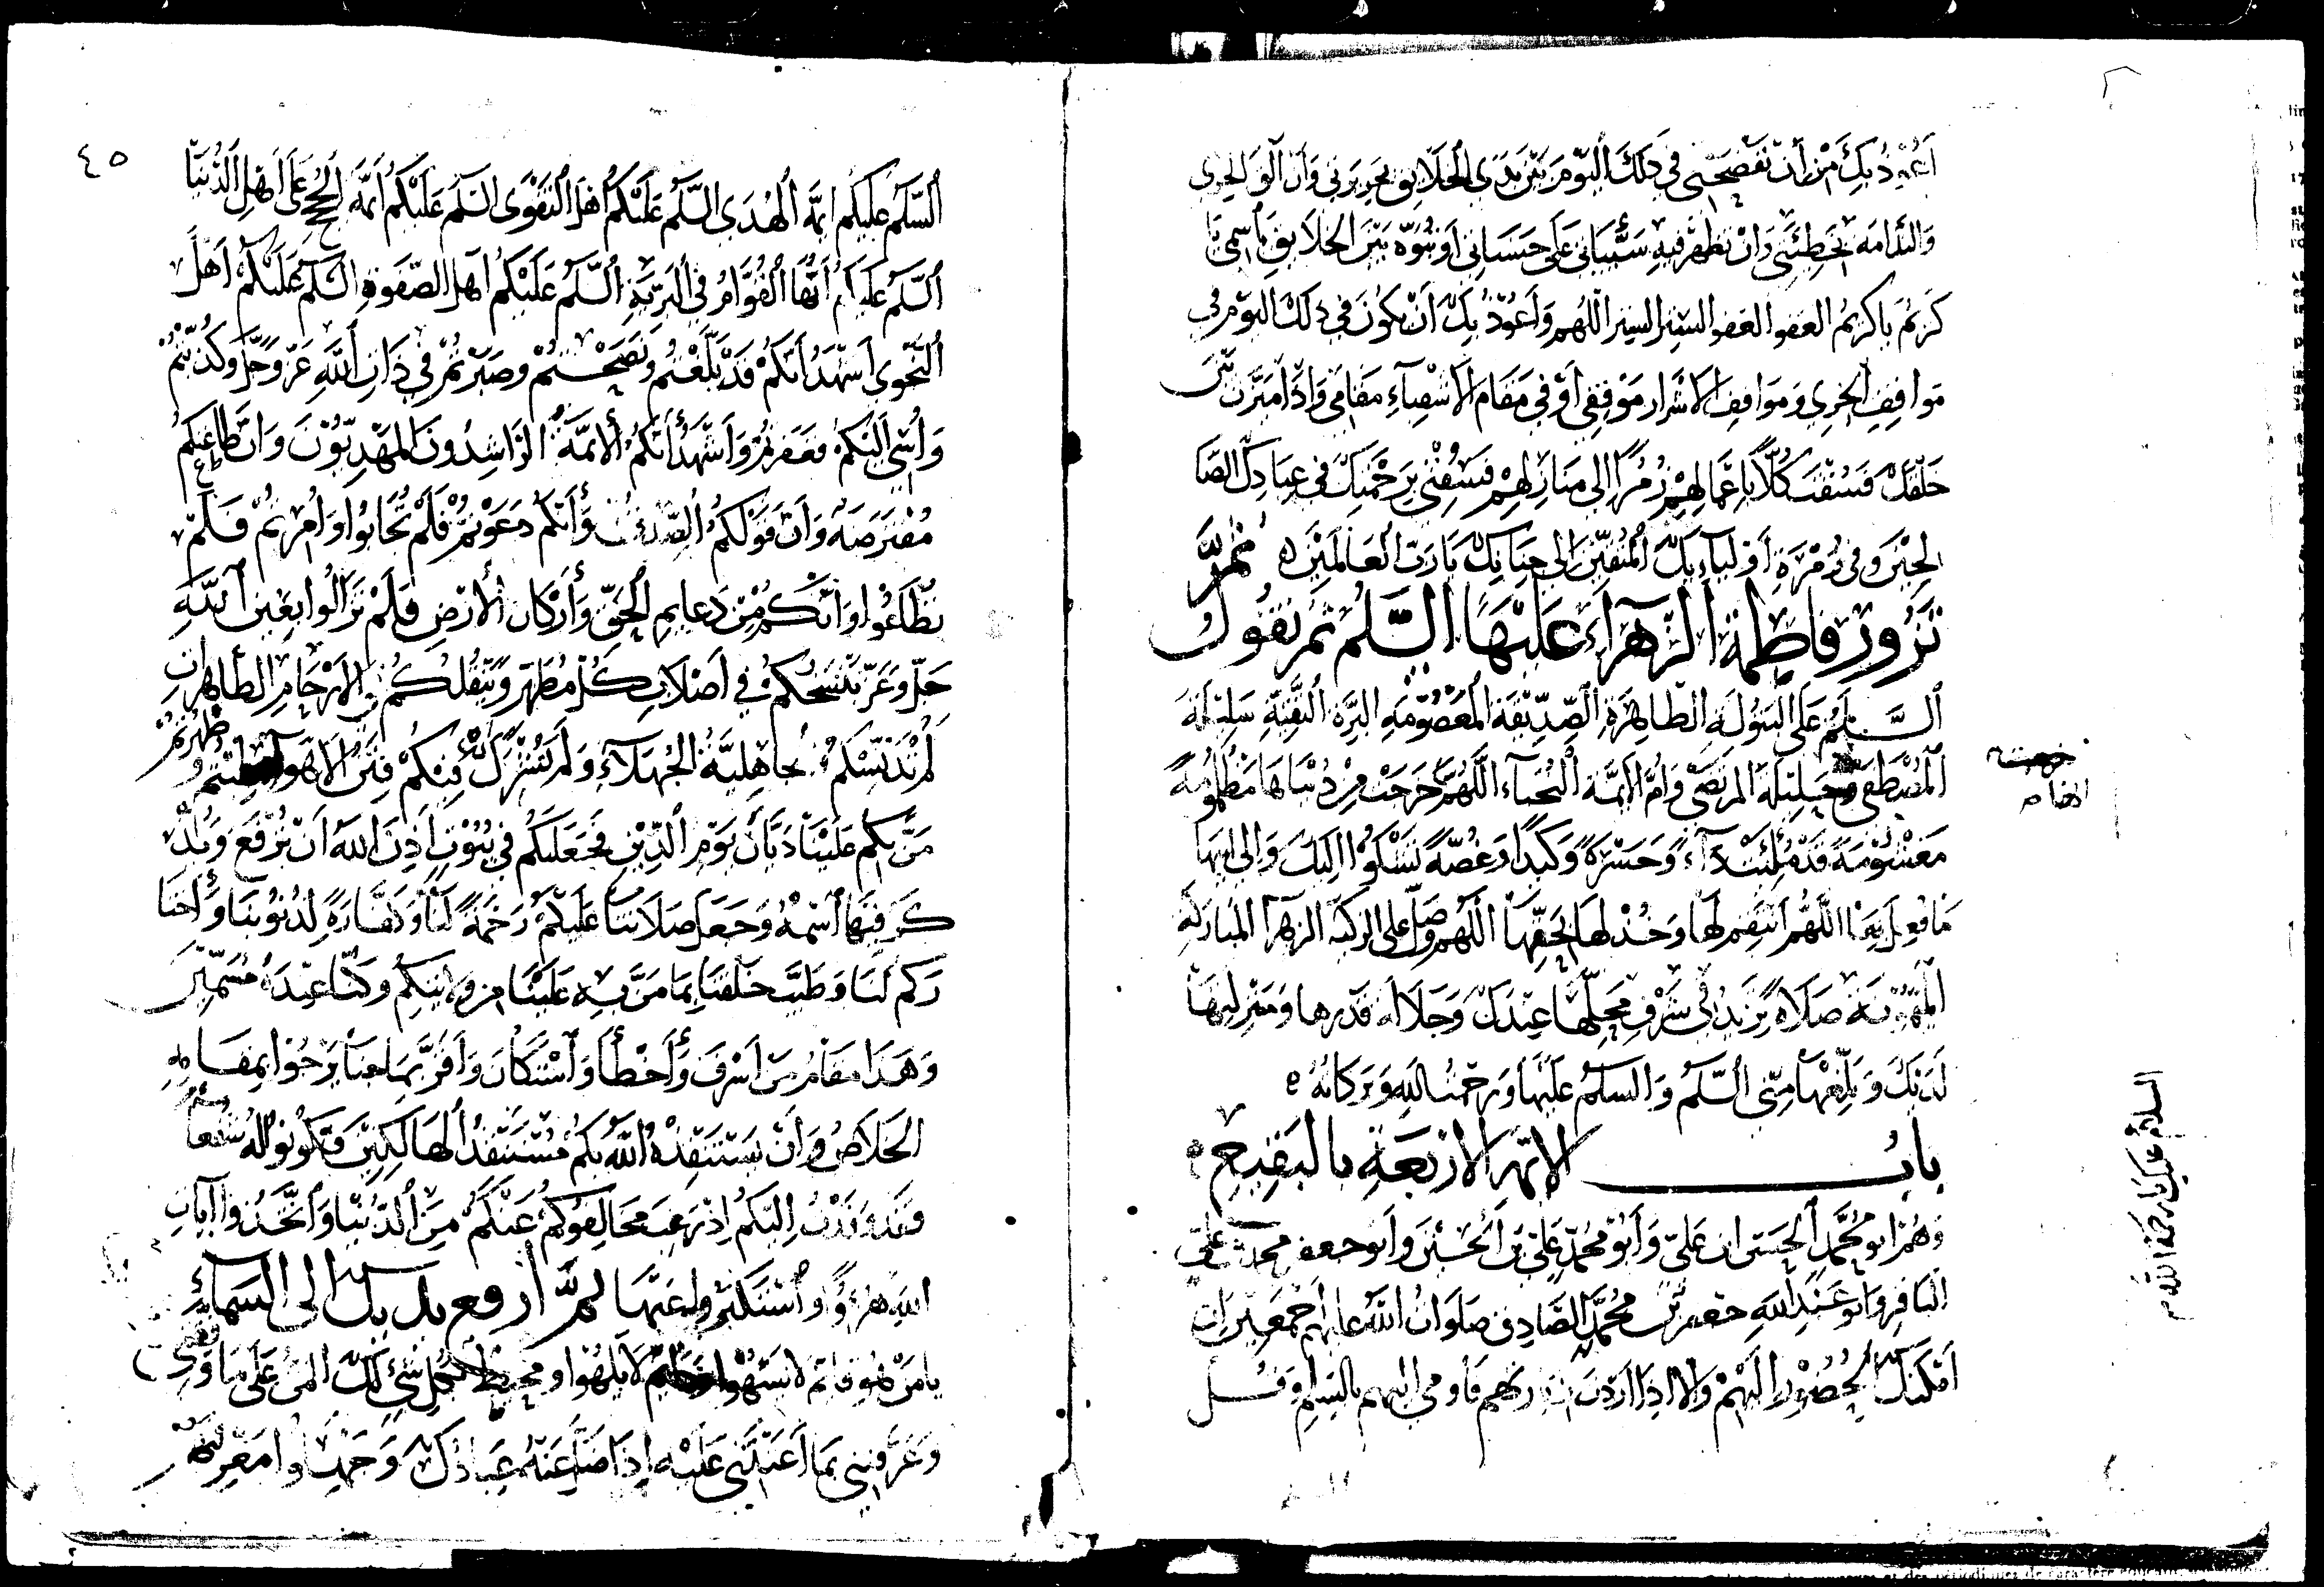 اعوذ بك من ان تفضحني في ذلك اليوم بين يدي الخلايق بجريرتي وان القى الخزي
والندامة بخطيئتي وان تظهر فيه سيئاتي على حسناتي او تنوه بين الخلايق باسمي يا
كريم يا كريم العفو العفو الستر الستر اللهم واعوذ بك ان يكون في ذلك اليوم في
مواقف الخزي ومواقف الاشرار موقفي او في مقام الاشقياء مقامي واذا ميزت بين
خلقك فسقت كلا باعمالهم زمرا الى منازلهم فسقني برحمتك في عبادك الصا
لحين وفي زمرة اوليايك المتقين الى جنانك يا رب العالمين ه ثم
تزور فاطمة الزهراء عليها السلم ثم تقول
السلم على البتولة الطاهرة الصديقة المعصومة البرة التقية سليلة
المصطفى وحليلة المرتضى وام الايمة النجباء اللهم خرجت من دنياها مظلومة
مغشومة قد ملئت داء وحسرة وكمدا وغصة تشكوا اليك والى ابيها
ما فعل بها اللهم انتقم لها وخذ لها بحقها اللهم وصل على الزكية الزهرا المباركة
الميمونة صلاة تزيد في شرف محلها عندك وجلالة قدرها ومنزلتها
لديك وبلغها مني السلم والسلم عليها ورحمت الله وبركاته ه
باب الايمة الاربعة بالبقيع ه
وهم ابو محمد الحسن ابن علي وابو محمد علي بن الحسين وابو جعفر محمد بن علي
الباقر وابو عبد الله جعفر بن محمد الصادق صلوات الله عليهم اجمعين ان
امكنك الحضور اليهم والا اذا اردت زيارتهم فاومي اليهم بالسلم وقل
السلام عليك ورحمة الله
٤٥
السلم عليكم ايمة الهدى السلم عليكم اهل التقوى السلم عليكم ايمة الحجج على اهل الدنيا
السلم عليكم ايها القوام في البرية السلم عليكم اهل الصفوة السلم عليكم اهل
النجوى اشهد انكم قد بلغتم ونصحتم وصبرتم في ذات الله عز وجل وكذبتم
واسي اليكم فغفرتم واشهد انكم الايمة الراشدون المهديون وان طاعتكم
مفترضة وان قولكم الصدق وانكم دعوتم فلم تجابوا وامرتم فلم
تطاعوا وانكم من دعايم الحق واركان الارض فلم تزالوا بعين الله
جل وعز ينسخكم في اصلاب كل مطهر وينقلكم في الارحام الطاهرات
لم تدنسكم جاهلية الجهلاء ولم تشترك فيكم فتن الاهواء طبتم و طهرتم
من بكم علينا ديان يوم الدين فجعلكم في بيوت اذن الله ان ترفع ويذ
كر فيها اسمه وجعل صلاتنا عليكم رحمة لنا وكفارة لذنوبنا واختا
ركم لنا وطيب خلقنا بما من به علينا من ولايتكم وكنا عنده مسمين
وهذا مقام من اسرف واخطأ واستكان واقر بما جنا يرجوا بمقامه
الخلاص وان يستنقذه الله بكم مستنقذ الهالكين فكونوا له شفعا
فقد وفدت اليكم اذ رغب مخالفوكم عنكم من الدنيا واتخذوا آيات
الله هزوا واستكبروا عنها ثم ارفع يديك الى السماء
يا من هو قائم لا يسهوا لا يلهوا ومحيط بكل شيء لك المن على ما وفقتني
وعرفتني بما اعنتني عليه اذا ضل عنه عبادك وجهلوا معرفته